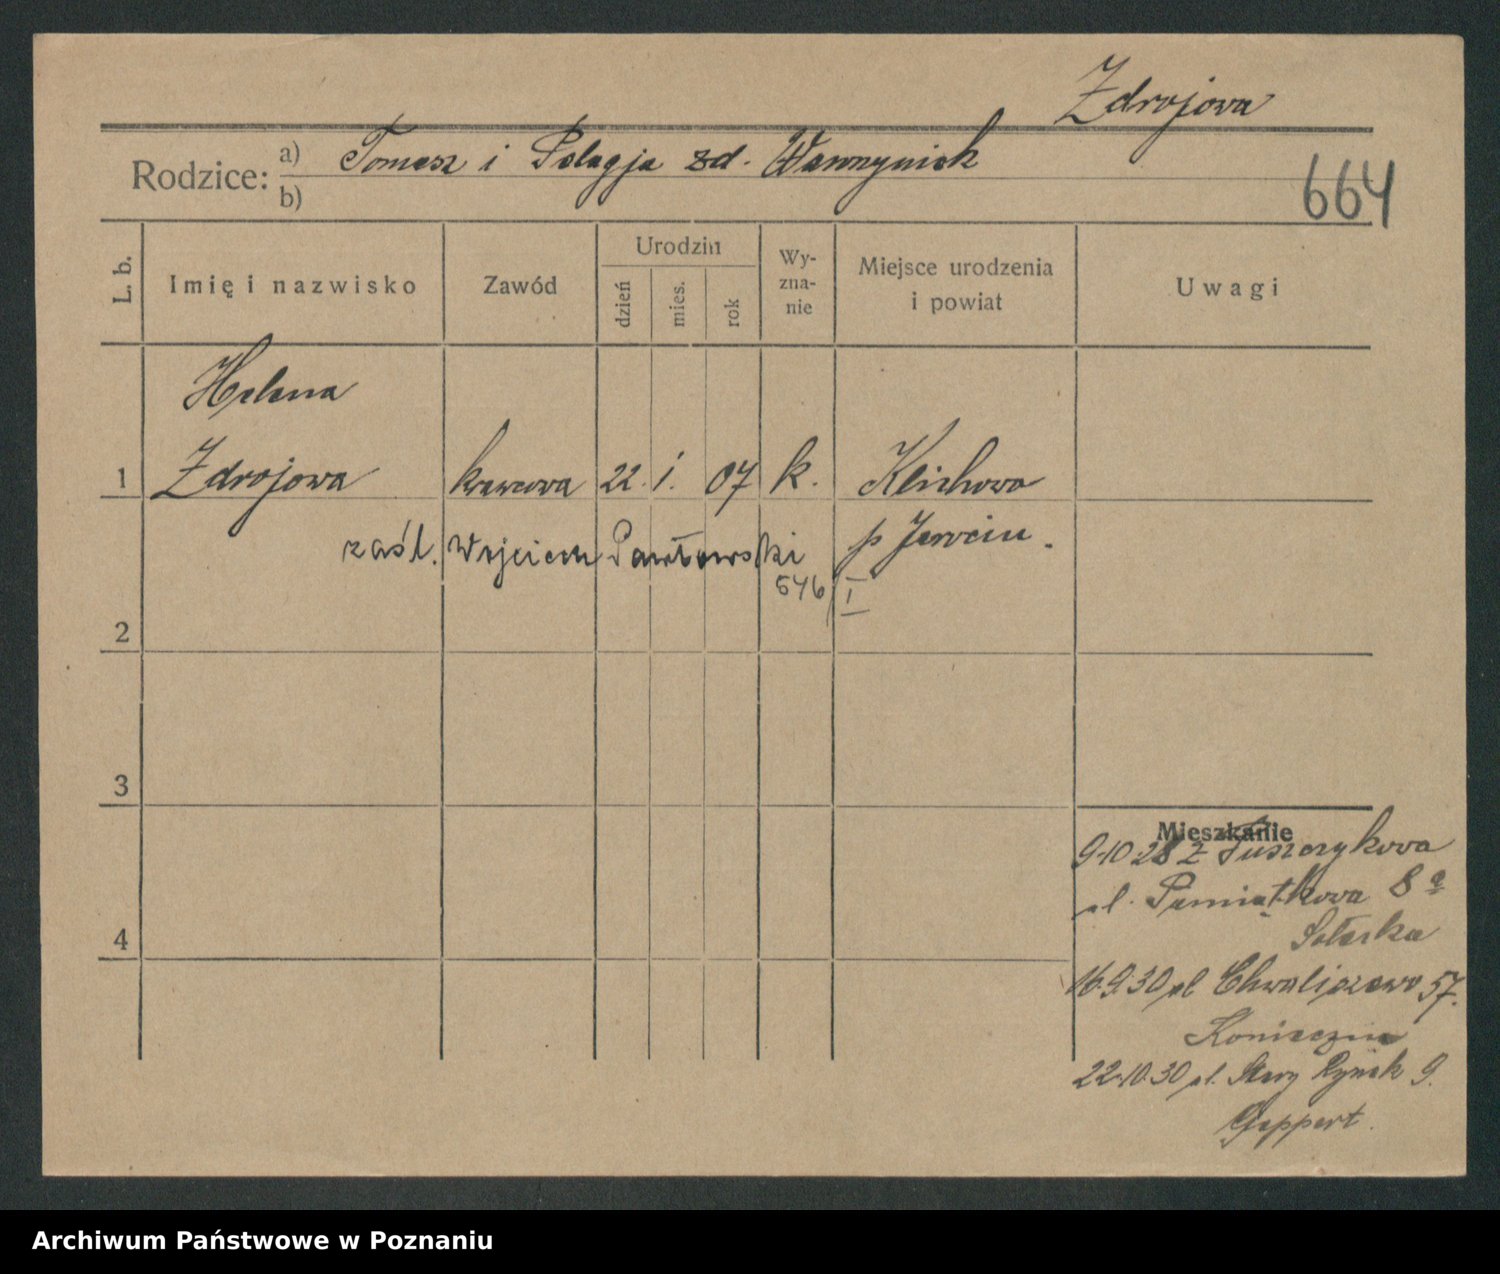 Zdrojowa
Rodzice: a) Tomasz i Pelagja zd. Wawrzyniak
b)
664
L. b. Imię i nazwisko Zawód Urodzin dzień mies. rok Wyznanie Miejsce urodzenia i powiat Uwagi
Helena
1 Zdrojowa krawcowa 22. 1. 07 k. Klichowo
zaśl. Wojciech Pawłowski p Jarocin.
546/I
2
3
Mieszkanie
9.10.28 z Tuszczykowa
ul. Pamiątkowa 8a
4
Solarska
16.9.30 ul Chwaliszewo 57.
Konieczna
22.10.30 ul. Stary Rynek 9.
Geppert.
Archiwum Państwowe w Poznaniu